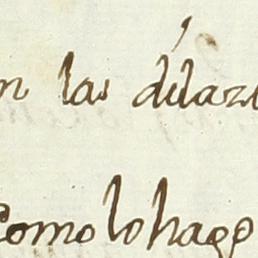 n las dilazi
como lo hago